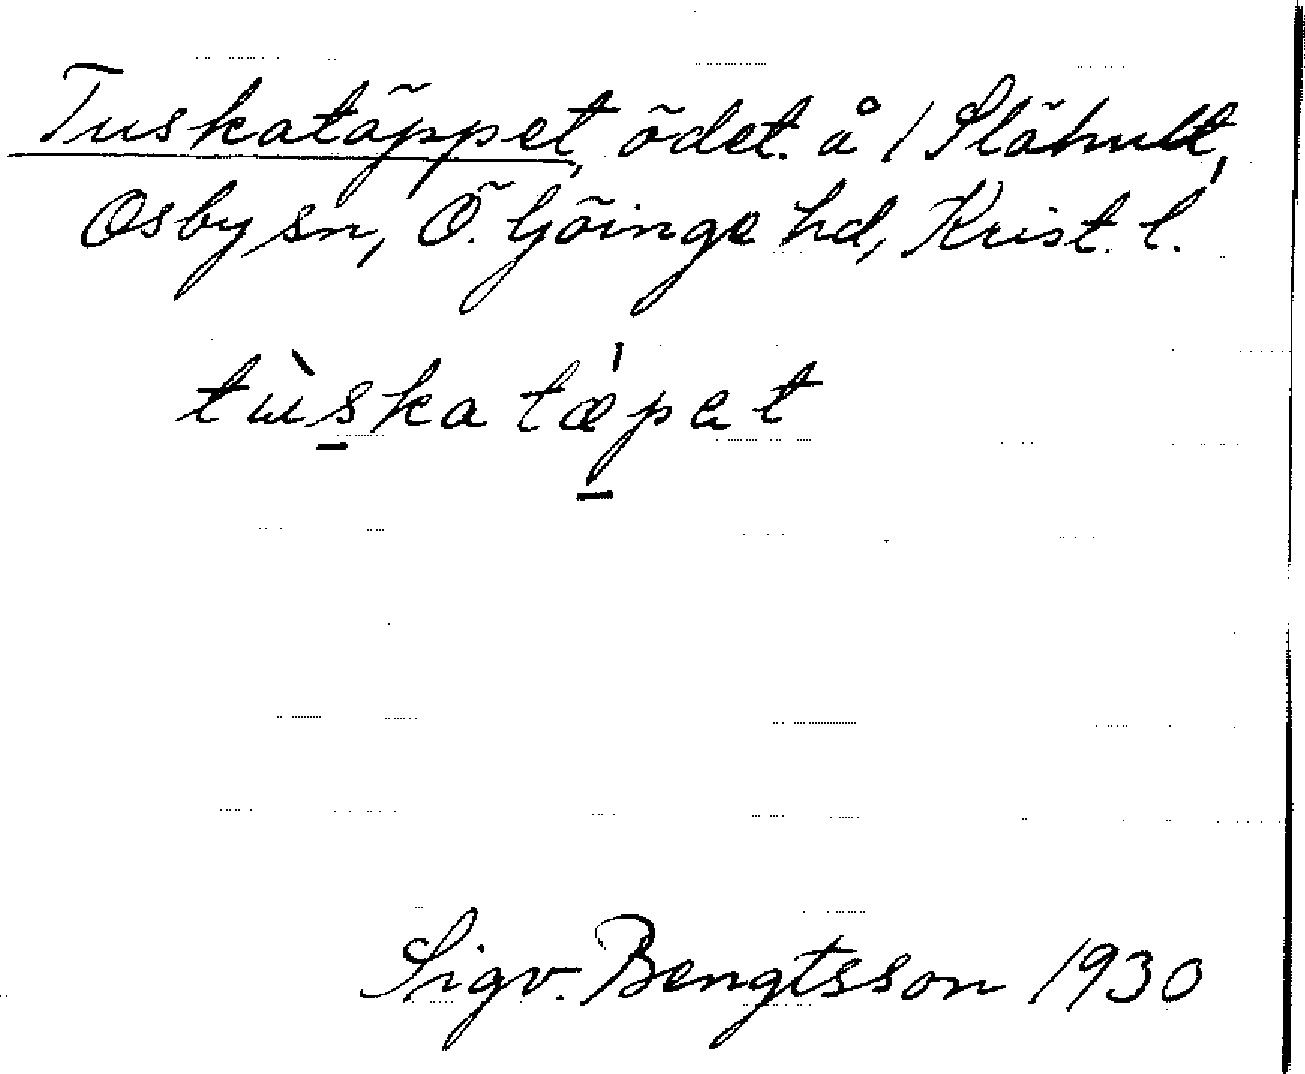 Tuskatäppet, ödet. å 1 Slähult,
Osby sn, Ö. Göinge hd, Krist. l.
tùska tǽpet
Sigv. Bengtsson 1930